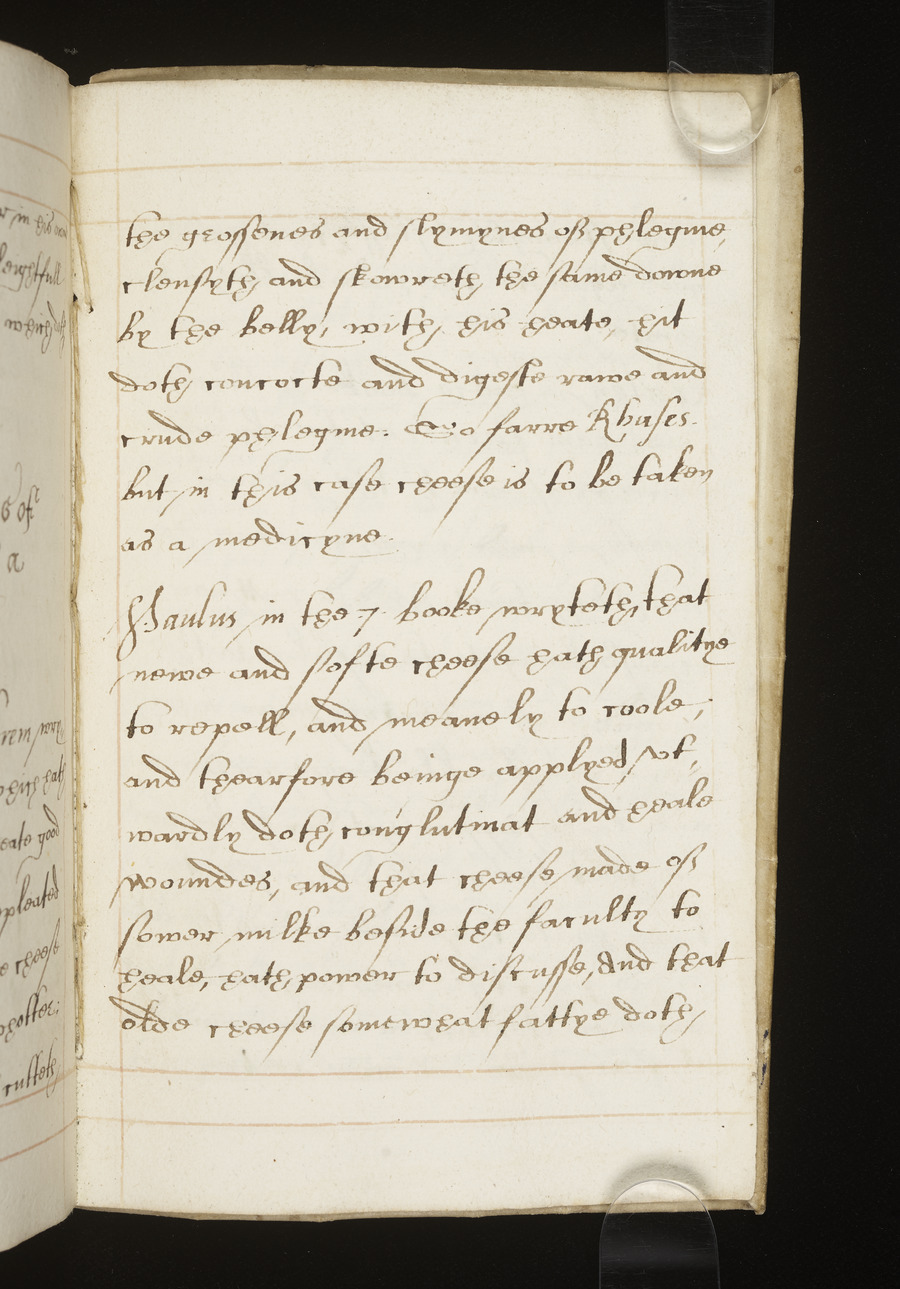 r in his own
leightfull
which doth
s of
a
rem wry
which hath
eate good
pleated
e cheese
cutteth
the grossenes and slymynes off phlegme,
clensyth, and skowreth, the same downe
by the belly, with, his heate, hit
doth concocte and digeste rawe and
crude phlegme. So farre Rhases.
but in this case cheese is to be taken
as a medicyne.
Paulus in the 7. booke wryteth, that
newe and softe cheese hath qualitye
to repell, and meanely to coole,
and thearfore beinge applyed vt,
wardly doth conglutinat and heale
woundes, and that cheese made off
sower milke beside the faculty to
heale, hath power to discusse, And that
olde cheese somewhat fattye doth,